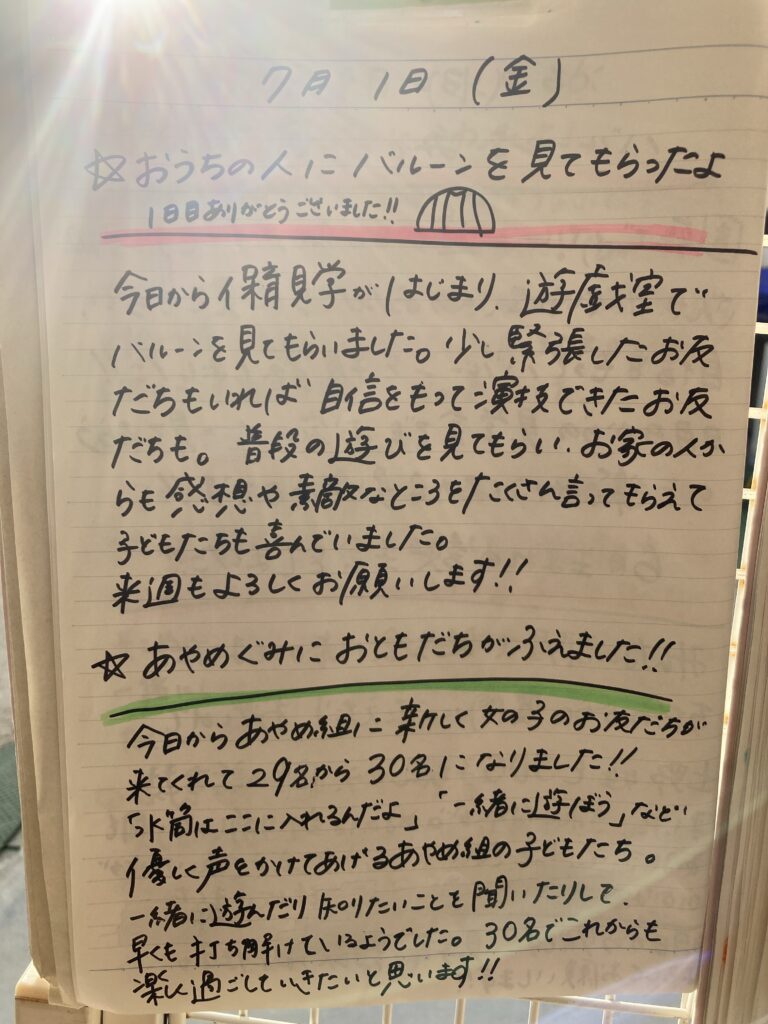 7月 1日 (金)
☆おうちの人にバルーンを見てもらったよ
1日目ありがとうございました!!
今日から保育見学がはじまり、遊戯室で
バルーンを見てもらいました。少し緊張したお友
だちもいれば 自信をもって演技できたお友
だちも。普段の遊びを見てもらい、お家の人か
らも感想や素敵なところをたくさん言ってもらえて
子どもたちも喜んでいました。
来週もよろしくお願いします!!
☆ あやめぐみに おともだちがふえました!!
今日からあやめ組に 新しく女の子のお友だちが
来てくれて 29名から 30名になりました!!
「水筒はここに入れるんだよ」「一緒に遊ぼう」など
優しく声をかけてあげるあやめ組の子どもたち。
一緒に遊んだり 知りたいことを聞いたりして、
早くも打ち解けているようでした。30名でこれからも
楽しく過ごしていきたいと思います!!